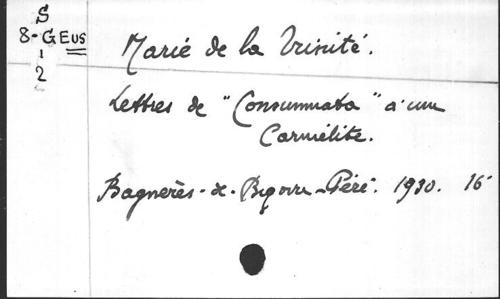 S
8-GEus
1
2
Marie de la Trinité.
Lettres de "Consummata" à une
Carmélite.
Bagnères-de-Bigorre-Péré. 1930. 16°